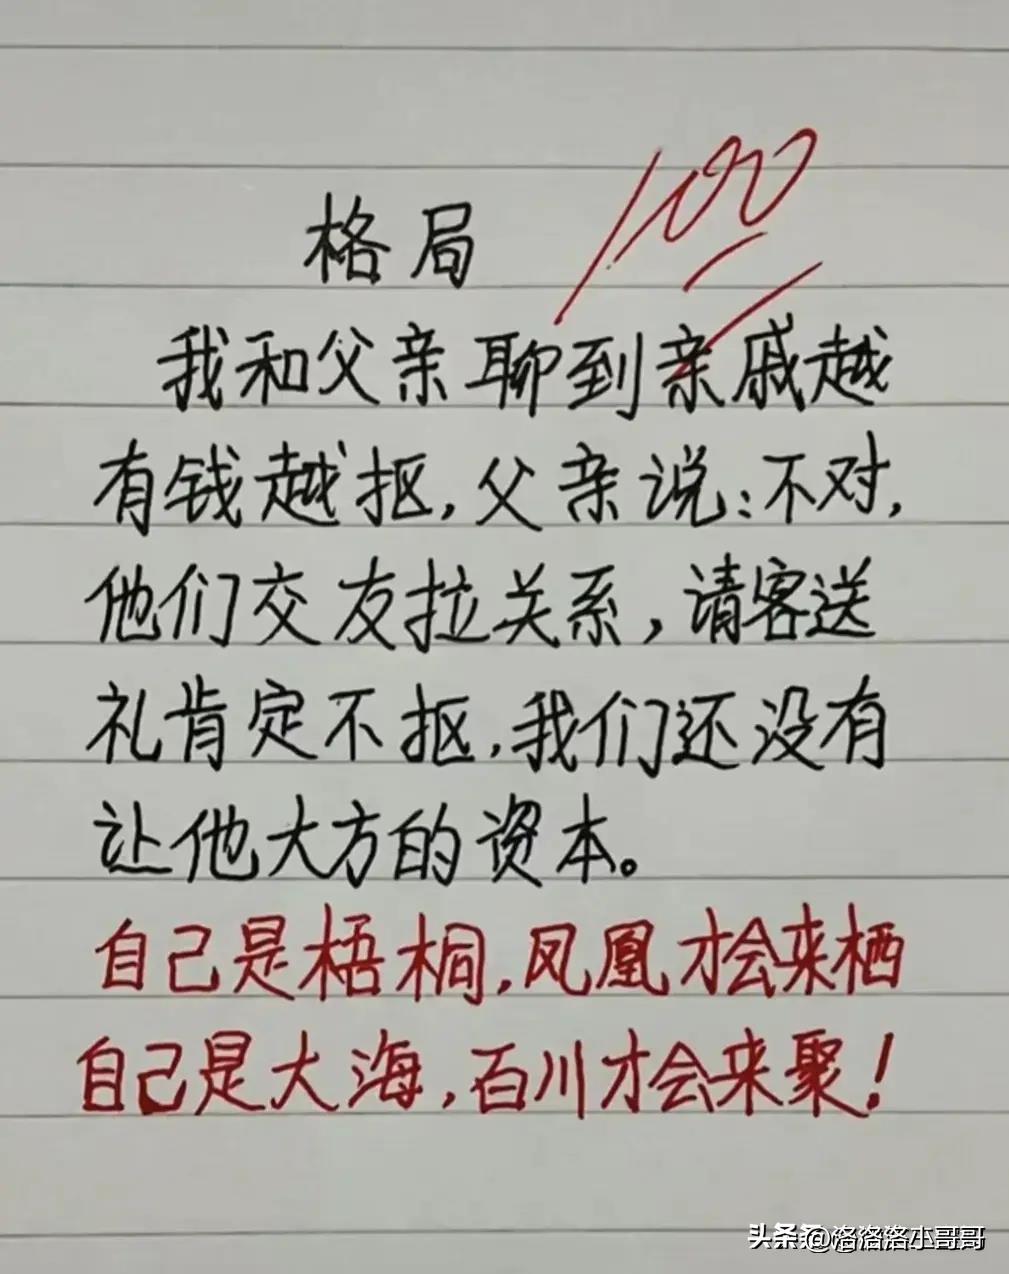 格局
100
我和父亲聊到亲戚越
有钱越抠,父亲说:不对,
他们交友拉关系,请客送
礼肯定不抠,我们还没有
让他大方的资本。
自己是梧桐,凤凰才会来栖
自己是大海,百川才会来聚!
头条 @洛洛洛小哥哥